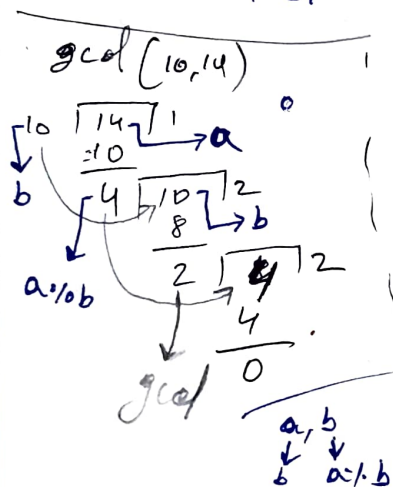 gcd (10,14)
10 14 1
-10 → a
b 4 10 2
8 → b
a%b 2 4 2
4
gcd 0
a, b
↓ ↓
b a%b